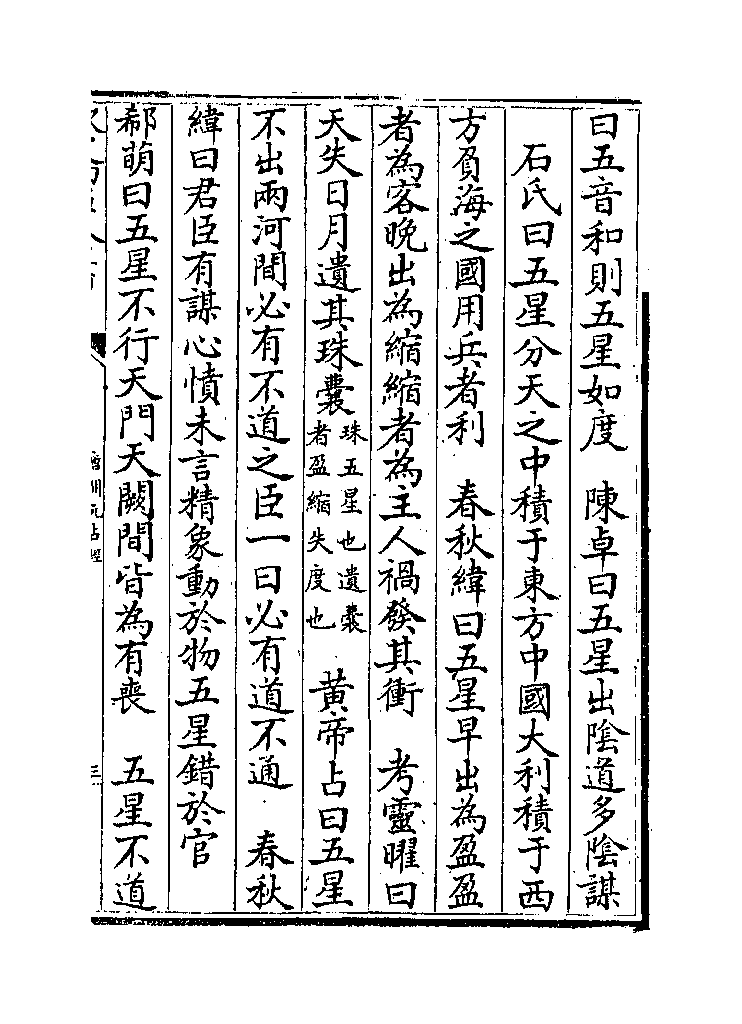 曰五音和則五星如度　陳卓曰五星出陰道多陰謀
石氏曰五星分天之中積于東方中國大利積于西
方負海之國用兵者利　春秋緯曰五星早出為盈盈
者為客晚出為縮縮者為主人禍發其衝　考靈曜曰
天失日月遺其珠囊珠五星也遺囊者盈縮失度也　黄帝占曰五星
不出兩河間必有不道之臣一曰必有道不通　春秋
緯曰君臣有謀心憤未言精象動於物五星錯於官
郗萌曰五星不行天門天闕間皆為有喪　五星不道
唐開元占經
三